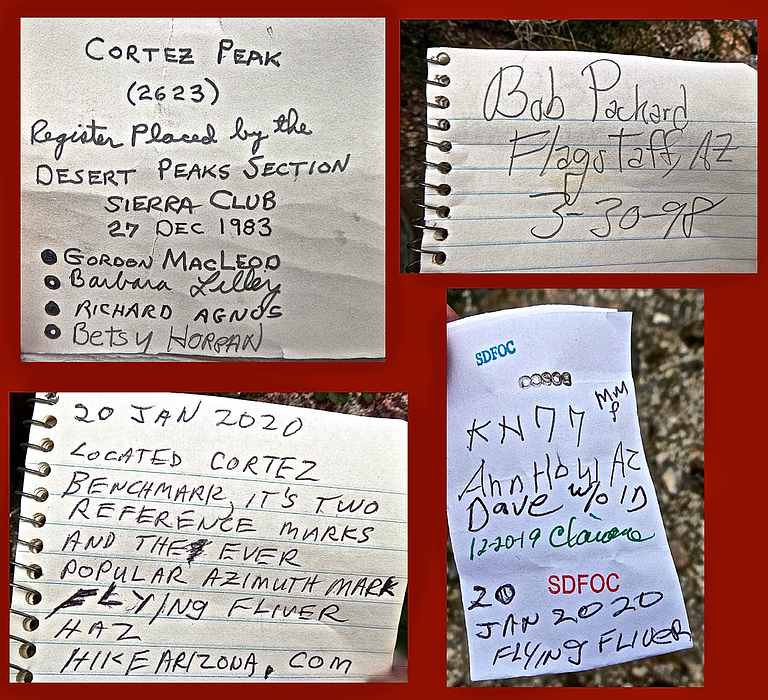 CORTEZ PEAK
(2623)
Register Placed by the
DESERT PEAKS SECTION
SIERRA CLUB
27 DEC 1983
GORDON MACLEOD
Barbara Lilley
RICHARD AGNOS
Betsy
Bob Packard
Flagstaff, AZ
3-30-98
20 JAN 2020
LOCATED CORTEZ
BENCHMARK, IT'S TWO
REFERENCE MARKS
AND THE EVER
POPULAR AZIMUTH MARK
FLYING FLIVER
HAZ
HIKEARIZONA.COM
SDFOC
MM
P
KH77
AZ
Dave w/o ID
12-20-19
SDFOC
20
JAN 2020
FLYING FLIVER